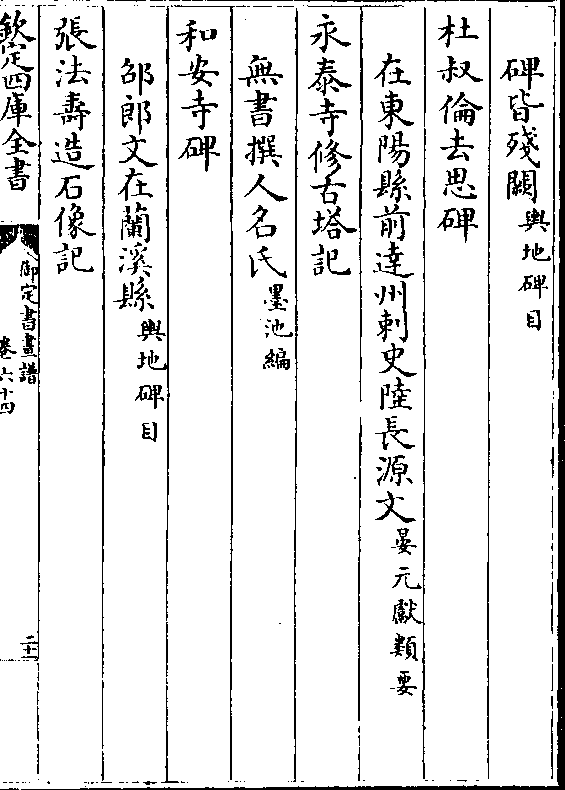 碑皆殘闕輿地碑目
杜叔倫去思碑
在東陽縣前達州刺史陸長源文晏元獻類要
永泰寺修古塔記
無書撰人名氏墨池編
和安寺碑
邵郎文在蘭溪縣輿地碑目
張法壽造石像記
欽定四庫全書
御定書畫譜
卷六十四
二十一